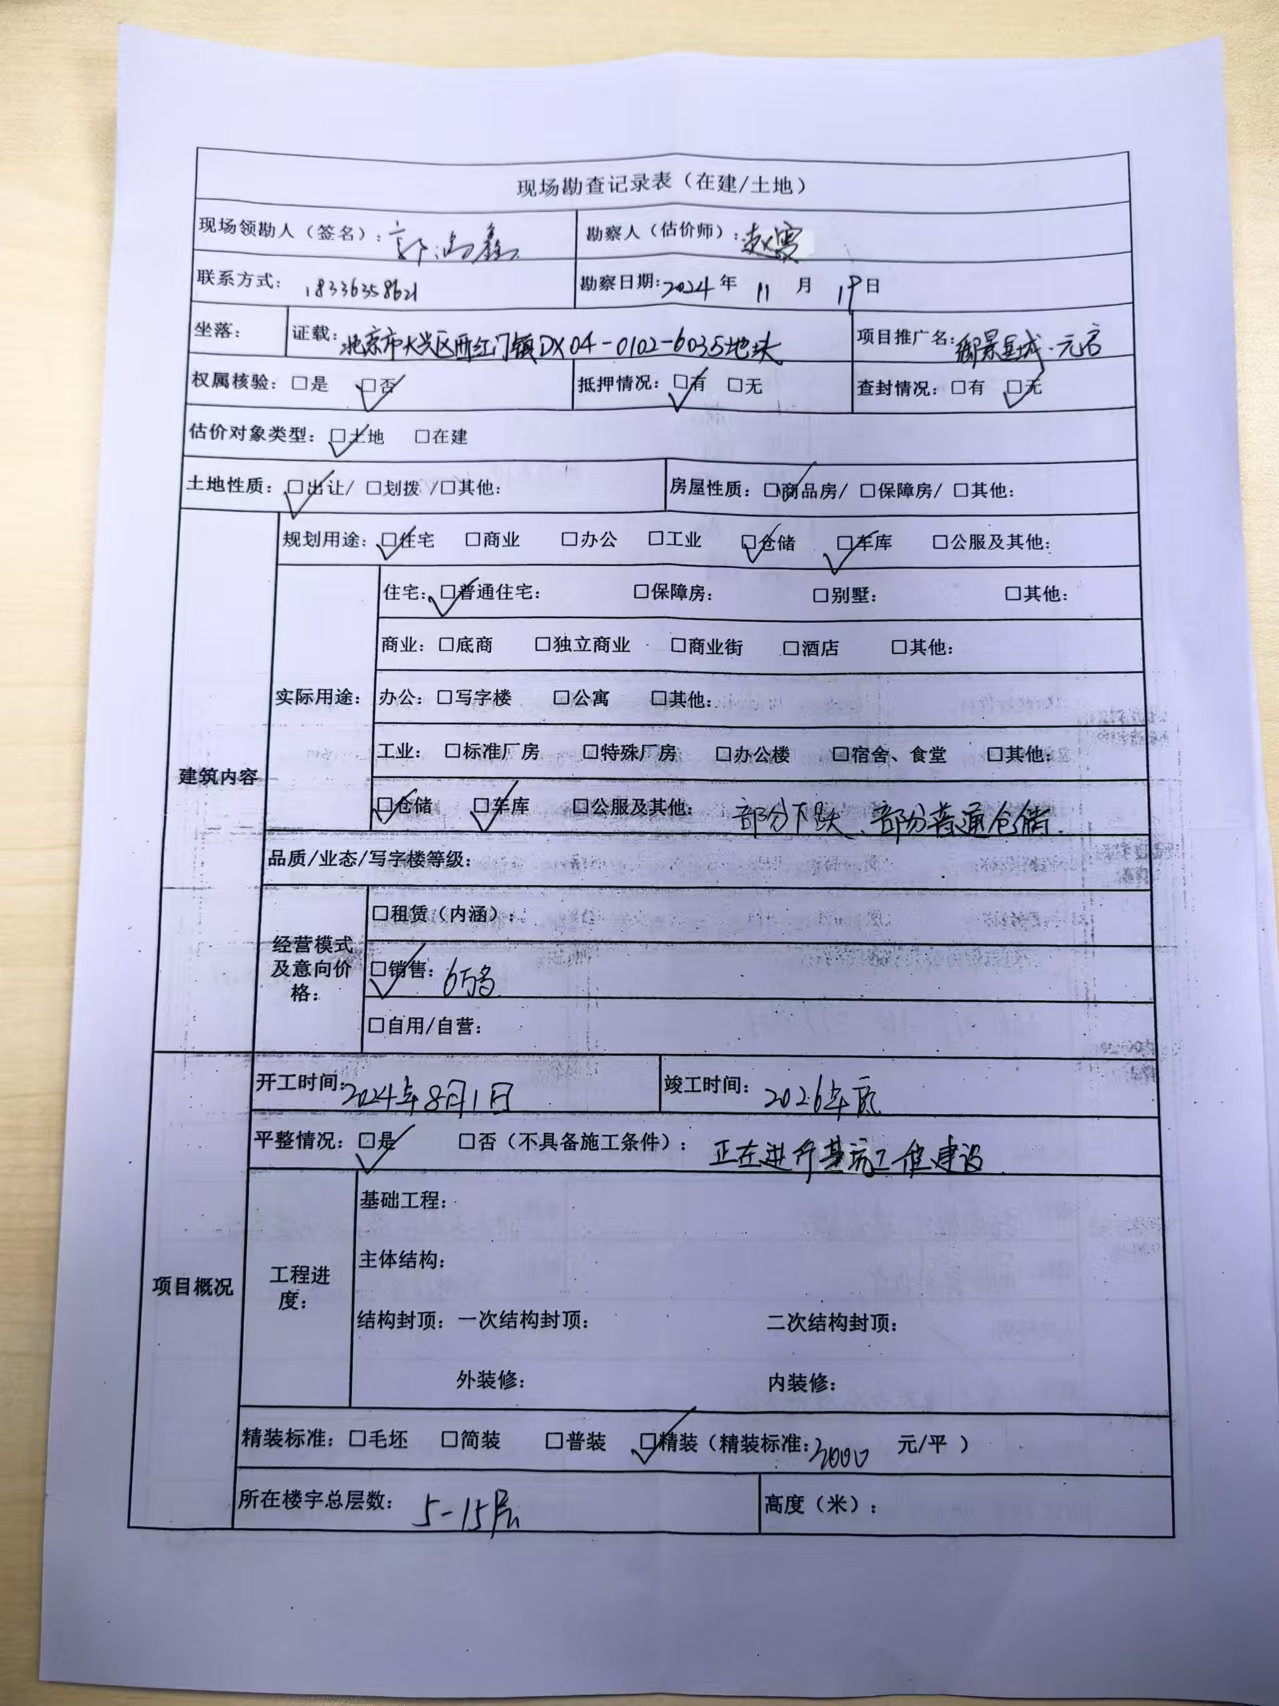 现场勘查记录表（在建/土地）
现场领勘人（签名）： 勘察人（估价师）：赵霞
联系方式： 18336358621 勘察日期：2024年 11 月 19日
坐落： 证载：北京市大兴区西红门镇DX04-0102-6035地块 项目推广名：御景星城·元启
权属核验：□是 ☑否 抵押情况：☑有 □无 查封情况：□有 ☑无
估价对象类型：☑土地 □在建
土地性质：☑出让/ □划拨 /□其他： 房屋性质：☑商品房/ □保障房/ □其他：
建筑内容
规划用途：☑住宅 □商业 □办公 □工业 ☑仓储 ☑车库 □公服及其他：
实际用途：
住宅：☑普通住宅： □保障房： □别墅： □其他：
商业：□底商 □独立商业 □商业街 □酒店 □其他：
办公：□写字楼 □公寓 □其他：
工业： □标准厂房 □特殊厂房 □办公楼 □宿舍、食堂 □其他：
☑仓储 ☑车库 □公服及其他： 部分下跃、部分普通仓储.
品质/业态/写字楼等级：
经营模式及意向价格：
□租赁（内涵）：
☑销售： 6万多
□自用/自营：
项目概况
开工时间：2024年8月1日 竣工时间： 2026年底
平整情况：☑是 □否（不具备施工条件）： 正在进行基坑工程建设
工程进度：
基础工程：
主体结构：
结构封顶：一次结构封顶： 二次结构封顶：
外装修： 内装修：
精装标准：□毛坯 □简装 □普装 ☑精装（精装标准：3000 元/平 ）
所在楼宇总层数： 5-15层 高度（米）：